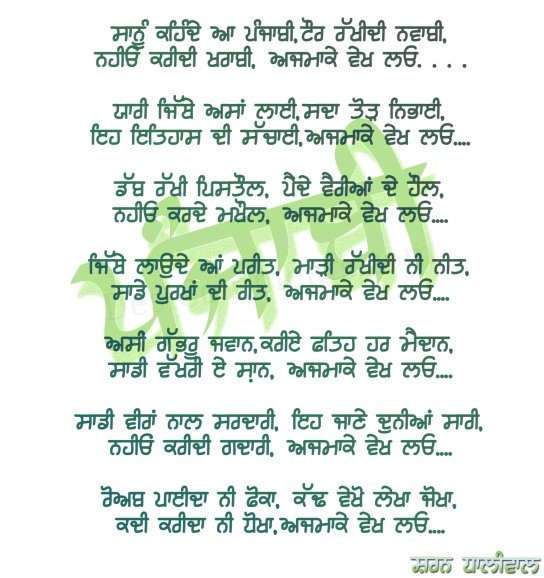 ਸਾਨੂੰ ਕਹਿੰਦੇ ਆ ਪੰਜਾਬੀ,ਟੌਰ ਰੱਖੀਦੀ ਨਵਾਬੀ,
ਨਹੀਓਂ ਕਰੀਦੀ ਖਰਾਬੀ, ਅਜਮਾਕੇ ਵੇਖ ਲਓ. . . .
ਯਾਰੀ ਜਿੱਥੇ ਅਸਾਂ ਲਾਈ,ਸਦਾ ਤੋੜ ਨਿਭਾਈ,
ਇਹ ਇਤਿਹਾਸ ਦੀ ਸੱਚਾਈ,ਅਜਮਾਕੇ ਵੇਖ ਲਓ....
ਡੱਬ ਰੱਖੀ ਪਿਸਤੌਲ, ਪੈਂਦੇ ਵੈਰੀਆਂ ਦੇ ਹੌਲ,
ਨਹੀਓਂ ਕਰਦੇ ਮਖੌਲ, ਅਜਮਾਕੇ ਵੇਖ ਲਓ....
ਪੰਜਾਬੀ
ਜਿੱਥੇ ਲਾਉਂਦੇ ਆਂ ਪਰੀਤ, ਮਾੜੀ ਰੱਖੀਦੀ ਨੀ ਨੀਤ,
ਸਾਡੇ ਪੁਰਖਾਂ ਦੀ ਰੀਤ, ਅਜਮਾਕੇ ਵੇਖ ਲਓ....
ਅਸੀ ਗੱਭਰੂ ਜਵਾਨ,ਕਰੀਏ ਫਤਿਹ ਹਰ ਮੈਦਾਨ,
ਸਾਡੀ ਵੱਖਰੀ ਏ ਸ਼ਾਨ, ਅਜਮਾਕੇ ਵੇਖ ਲਓ....
ਸਾਡੀ ਵੀਰਾਂ ਨਾਲ ਸਰਦਾਰੀ, ਇਹ ਜਾਣੇ ਦੁਨੀਆਂ ਸਾਰੀ,
ਨਹੀਓਂ ਕਰੀਦੀ ਗਦਾਰੀ, ਅਜਮਾਕੇ ਵੇਖ ਲਓ....
ਰੋਅਬ ਪਾਈਦਾ ਨੀ ਫੋਕਾ, ਕੱਢ ਵੇਖੋ ਲੇਖਾ ਜੋਖਾ,
ਕਦੀ ਕਰੀਦਾ ਨੀ ਧੋਖਾ,ਅਜਮਾਕੇ ਵੇਖ ਲਓ....
ਸ਼ਰਨ ਧਾਲੀਵਾਲ